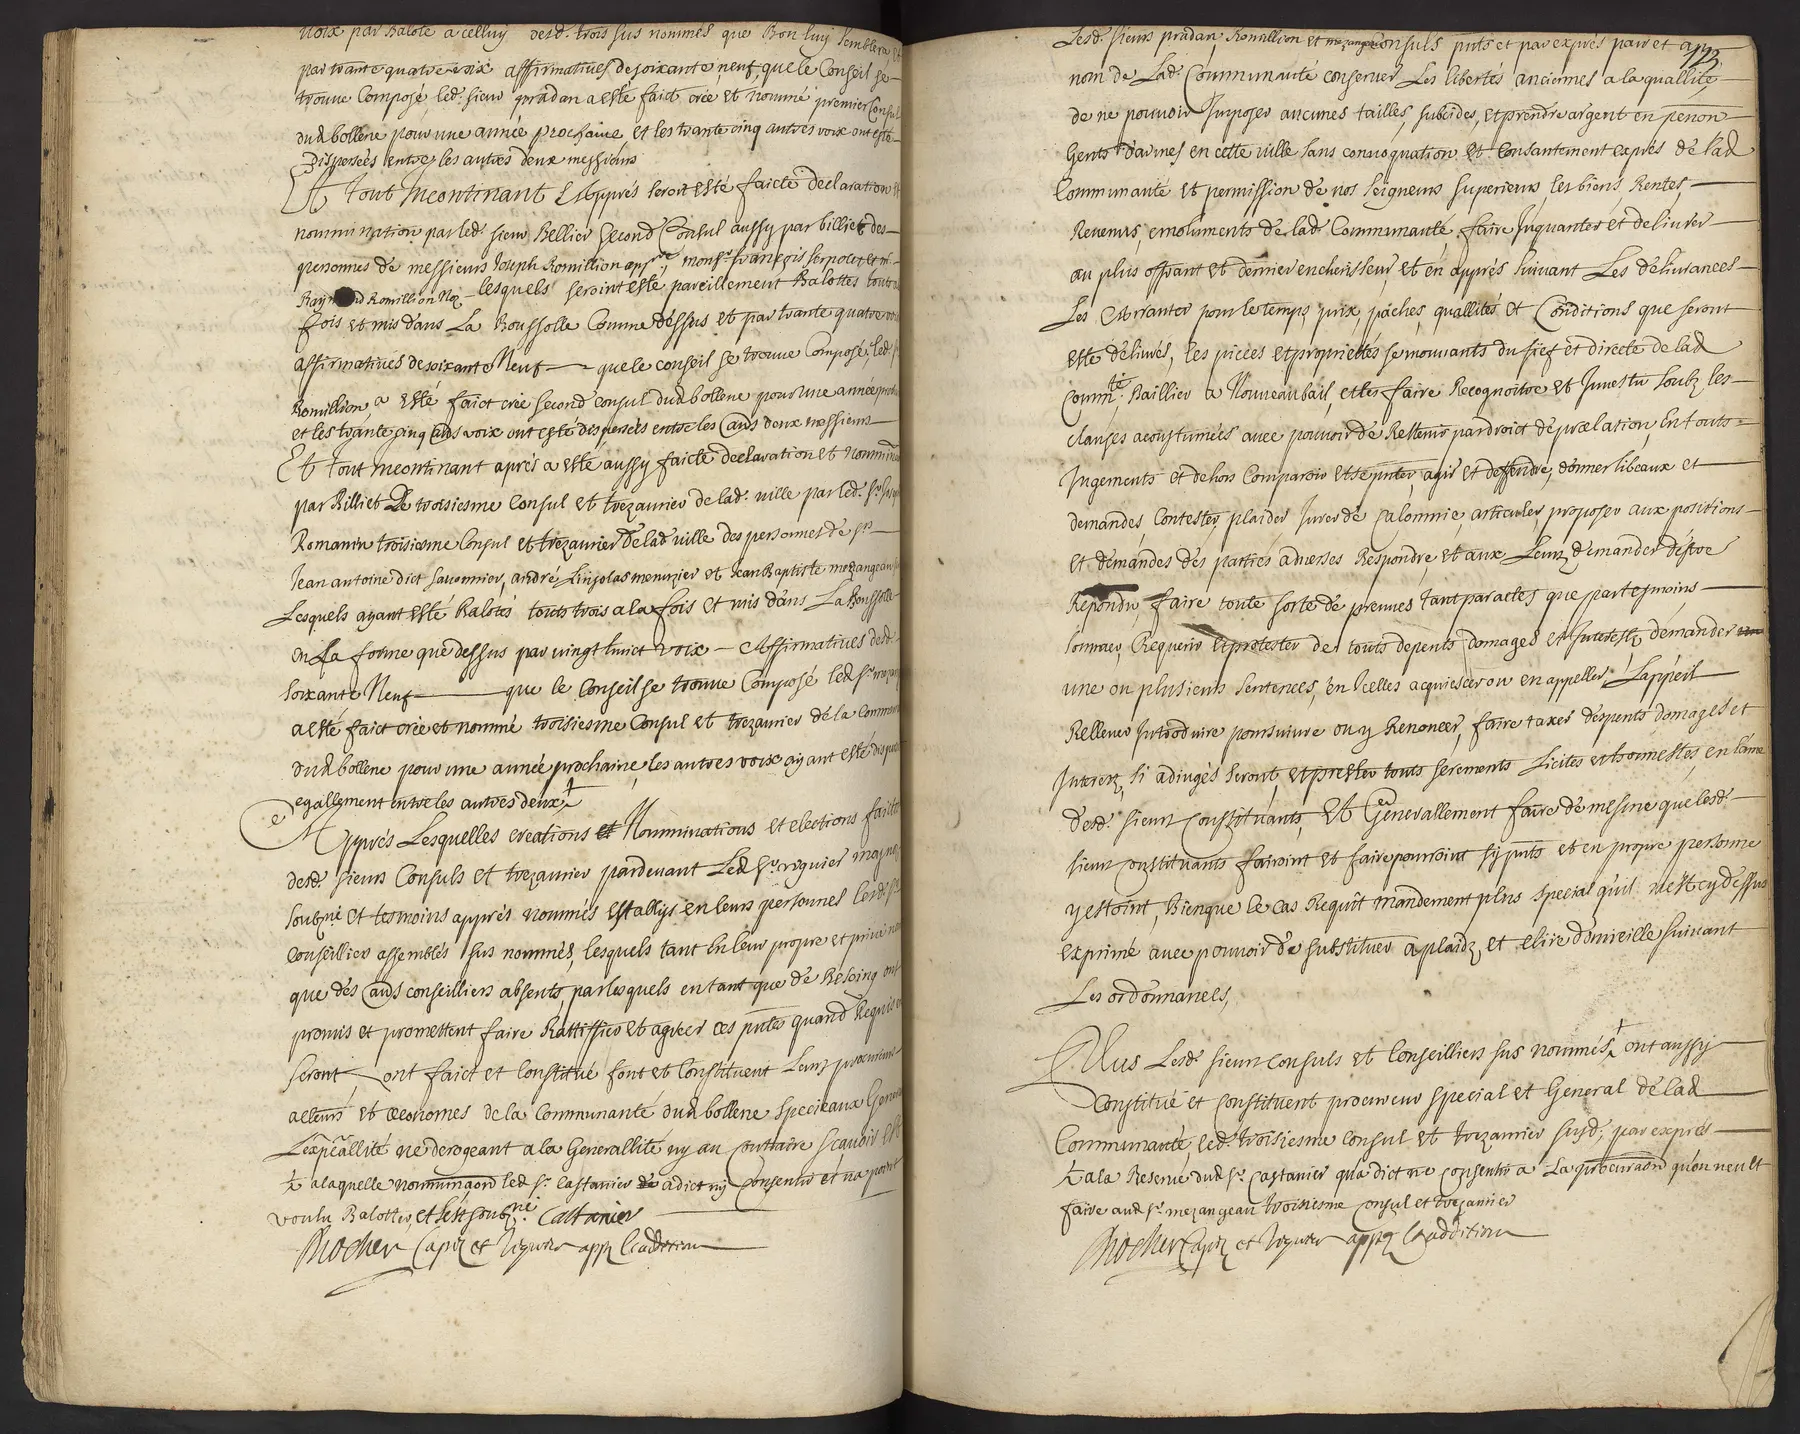 voix par Balote a celluy desd. trois sus nommés que Bon luy semblera, et
par trante quatre voix affirmatives de soixante neuf que le Conseil se
trouve Composé, led. sieur pradan a esté faict crée et nommé premier Consul
dud bollene pour une année prochaine et les trante cinq autres voix ont esté
Dispersées entre les autres deux messieurs
Et tout Incontinant et Apprés seroit esté faicte declaration et
nommination par led. sieur Bellier second Consul aussy par billiet des
personnes de messieurs Joseph Romillion monsr. françois
Raymond Romillion lesquels seroint esté pareillement Balottés touts a
fois et mis dans La Boussolle Comme dessus et par trante quatre voix
affirmatives de soixante Neuf que le conseil se trouve Composé, led. sr
Romillion a esté faict crée second consul dud bollene pour une année
et les trante cinq voix ont esté dispersées entre les deux messieurs
Et tout Incontinant aprés a esté aussy faicte declaration et
par Billiet De troisiesme Consul et trezaurier de lad. ville par led. sr.
Romanin troisiesme Consul et trezaurier de lad ville des personnes de srs
Jean antoine dict savonnier, andré menuzier et Jean Baptiste mezangeau
Lesquels ayant esté Balotés touts trois a la fois et mis dans La Boussolle
en La forme que dessus par vingt huict voix Affirmatives de
soixante Neuf que le Conseil se trouve Composé led sr.
a esté faict crée et nommé troisiesme Consul et trezaurier de la
dud bollene pour une année prochaine, les autres voix ayant esté
egallement entre les autres deux
Apprés Lesquelles creations et Nominations et elections faictes
desd. sieurs Consuls et trezaurier pardevant Led sr. viguier
soubzné et tesmoins apprés nommés establys en leurs personnes lesd. srs
Conseilliers assemblés sus nommés, lesquels tant En leur propre et privé nom
que des conseilliers absents, par lesquels en tant que de Besoing ont
promis et promettent faire Rattiffier et agréer ces pntes quand Requis
seront, ont faict et constitué font et constituent Leurs
et oeconomes de la Communauté dud bollene speciaux
ne derogeant a la Generallité ny au Contraire scavoir est
a laquelle led sr. Castanier a dict ny Consentir et na point
voulu Balotter, et sest soubné Castanier
Rocher Capne et Viguier
Lesd. sieurs pradan, Romillion et mezangeau Consuls pnts et par exprés pour et
nom de Lad. Communauté conserver Les libertés anciennes a la quallité
de ne pouvoir Imposer aucunes tailles, subcides, et prendre argent en
Gents d'armes en cette ville sans convoquation et Consantement exprés de lad
Communauté et permission de nos seigneurs superieurs, les biens, Rentes,
Revenus, emoluments de lad. Communauté, faire Inquanter et delivrer
au plus offrant et dernier encherisseur, et en apprés suivant Les delivrances
Les Arranter pour le temps, prix, paches, quallités et Conditions que seront
esté delivrés, les pieces et proprietés se mouvants du fief et directe de lad
Commté. Baillier a Nouveau bail, et les faire Recognoitre et Investir soubz les
clauses acoustumées avec pouvoir de Rettenir par droict de prælation, En touts
Jugements et dehors Comparoir et se pnter, agir et deffendre, donner libeaux et
demandes, Contester, plaider Jurer de Calomnie, articuler, proposer aux positions
et demandes des parties adverses Respondre, et aux Leurs demander d'estre
Repondu, faire toute sorte de preuves tant par actes que par tesmoins
sommer, Requerir et protester de touts depents domages et Interestz demander
une ou plusieurs sentences, en Icelles acquiescer ou en appeller, L'appeil
Rellever Introduire poursuivre ou y Renoncer, faire taxer despents domages et
Interestz si adiugés seront, et prester touts serements Licites et honnestes en l'ame
desd. sieurs Constituants, Et Generallement faire de mesme que lesd.
sieurs constituants fairoint et faire pourroint sy pnts et en propre personne
y estoint, Bienque le cas Requit mandement plus special qu'il n'est cy dessus
exprimé avec pouvoir de substituer a plaidz, et elire domicille suivant
Les ordonnances,
Plus Lesds. sieurs consuls et Conseilliers sus nommés ont aussy
Constitué et constituent procureur special et General de lad
Communauté led. troisiesme consul et trezaurier susd. par exprés
a la Reserve dud sr. Castanier qu'a dict ne consentir a La procuraon qu'on veut
faire aud sr. mezangeau troisiesme consul et trezaurier
Rocher Capne et Viguier